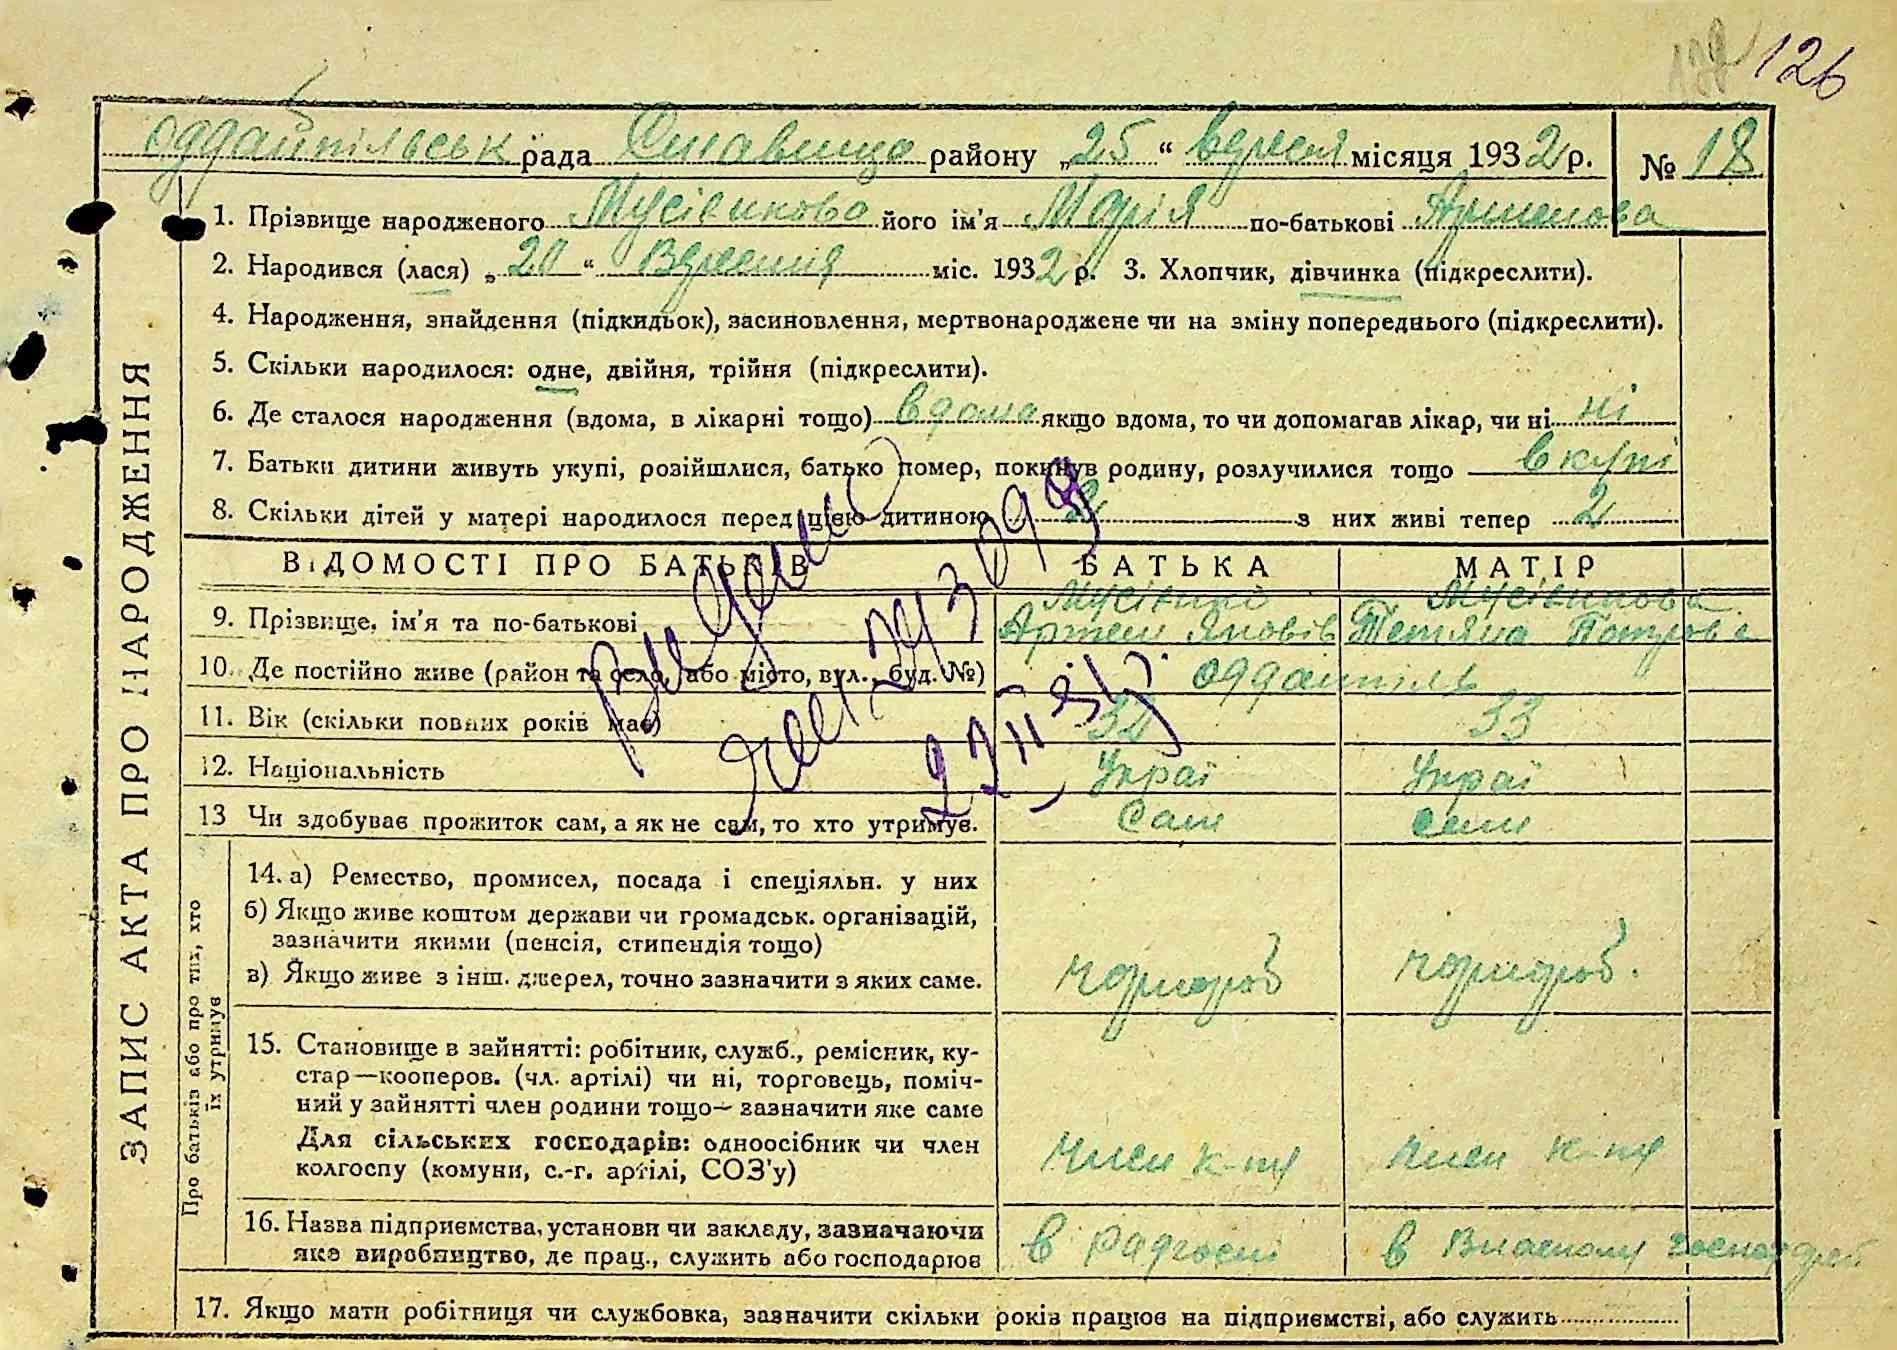 126
оддайпільськ рада Ставищо району „25“ вересня місяця 1932 р. № 18
1. Прізвище народженого Мусієнкова його ім'я Марія по-батькові Артемова
2. Народився (лася) „20“ Вересня міс. 1932 р. 3. Хлопчик, дівчинка (підкреслити).
4. Народження, знайдення (підкидьок), засиновлення, мертвонароджене чи на зміну попереднього (підкреслити).
5. Скільки народилося: одне, двійня, трійня (підкреслити).
6. Де сталося народження (вдома, в лікарні тощо) вдома якщо вдома, то чи допомагав лікар, чи ні ні
7. Батьки дитини живуть укупі, розійшлися, батько помер, покинув родину, розлучилися тощо вкупі
8. Скільки дітей у матері народилося перед цією дитиною 2 з них живі тепер 2
ВІДОМОСТІ ПРО БАТЬКІВ БАТЬКА МАТІР
9. Прізвище, ім'я та по-батькові Артем Яковів Тетяна Петрова
10. Де постійно живе (район та село, або місто, вул., буд. №) оддайпіль
11. Вік (скільки повних років має) 32 33
12. Національність Украї Украї
13 Чи здобуває прожиток сам, а як не сам, то хто утримує. Сам сама
14. а) Ремество, промисел, посада і спеціяльн. у них
б) Якщо живе коштом держави чи громадськ. організацій,
зазначити якими (пенсія, стипендія тощо)
в) Якщо живе з інш. джерел, точно зазначити з яких саме. чорнороб чорнороб.
15. Становище в зайнятті: робітник, служб., ремісник, ку-
стар—кооперов. (чл. артілі) чи ні, торговець, поміч-
ний у зайнятті член родини тощо— зазначити яке саме
Для сільських господарів: одноосібник чи член
колгоспу (комуни, с.-г. артілі, СОЗ'у)
16. Назва підприємства, установи чи закладу, зазначаючи
яке виробництво, де прац., служить або господарює в радгоспі в власному господар
17. Якщо мати робітниця чи службовка, зазначити скільки років працює на підприємстві, або служить
ЗАПИС АКТА ПРО НАРОДЖЕННЯ
Про батьків або про тих, хто
їх утримує
Видано